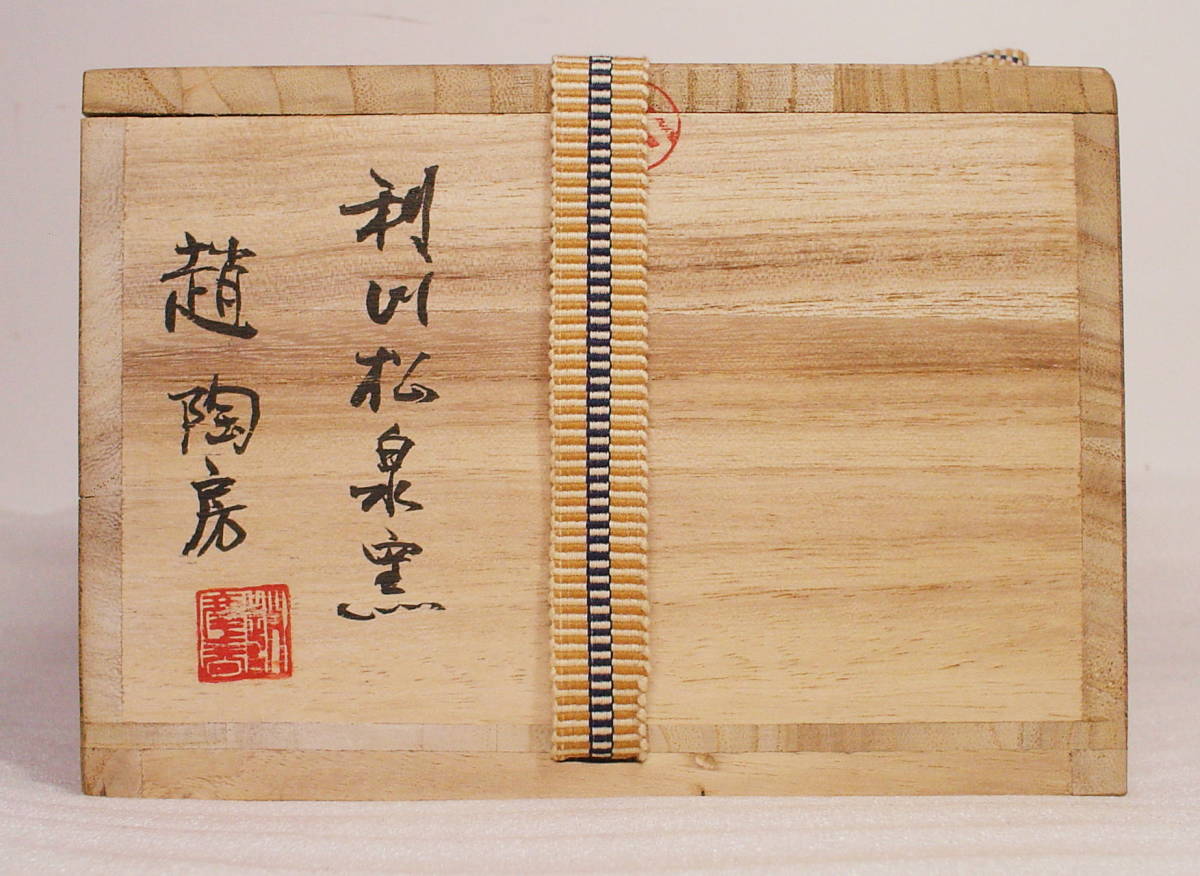 利川松泉窯
趙陶房